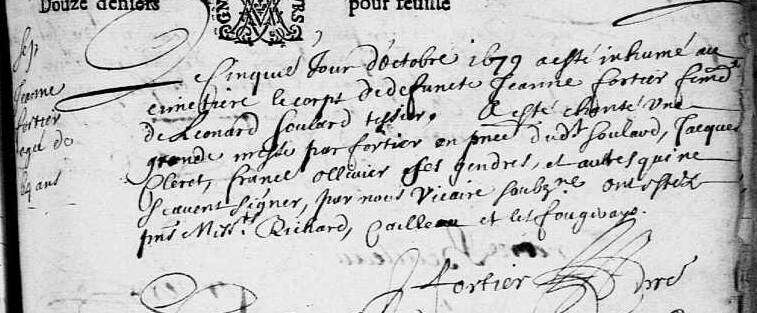 Douze deniers pour feuille
Sep
Jeanne
fortier
agé de
ans
Cinquié Jour d'Octobre 1679 a esté inhumé au
cimetière le corps de defuncte Jeanne fortier femme
de Leonard Soulard tessier. A esté chanté une
grande messe par fortier en pnce dudt Soulard, Jacques
Cleret, france ollivier ses gendres, et autres qui ne
scavent signer, par nous Vicaire soubzne. ont esté
pns Missrs Richard, Cailleau et
fortier